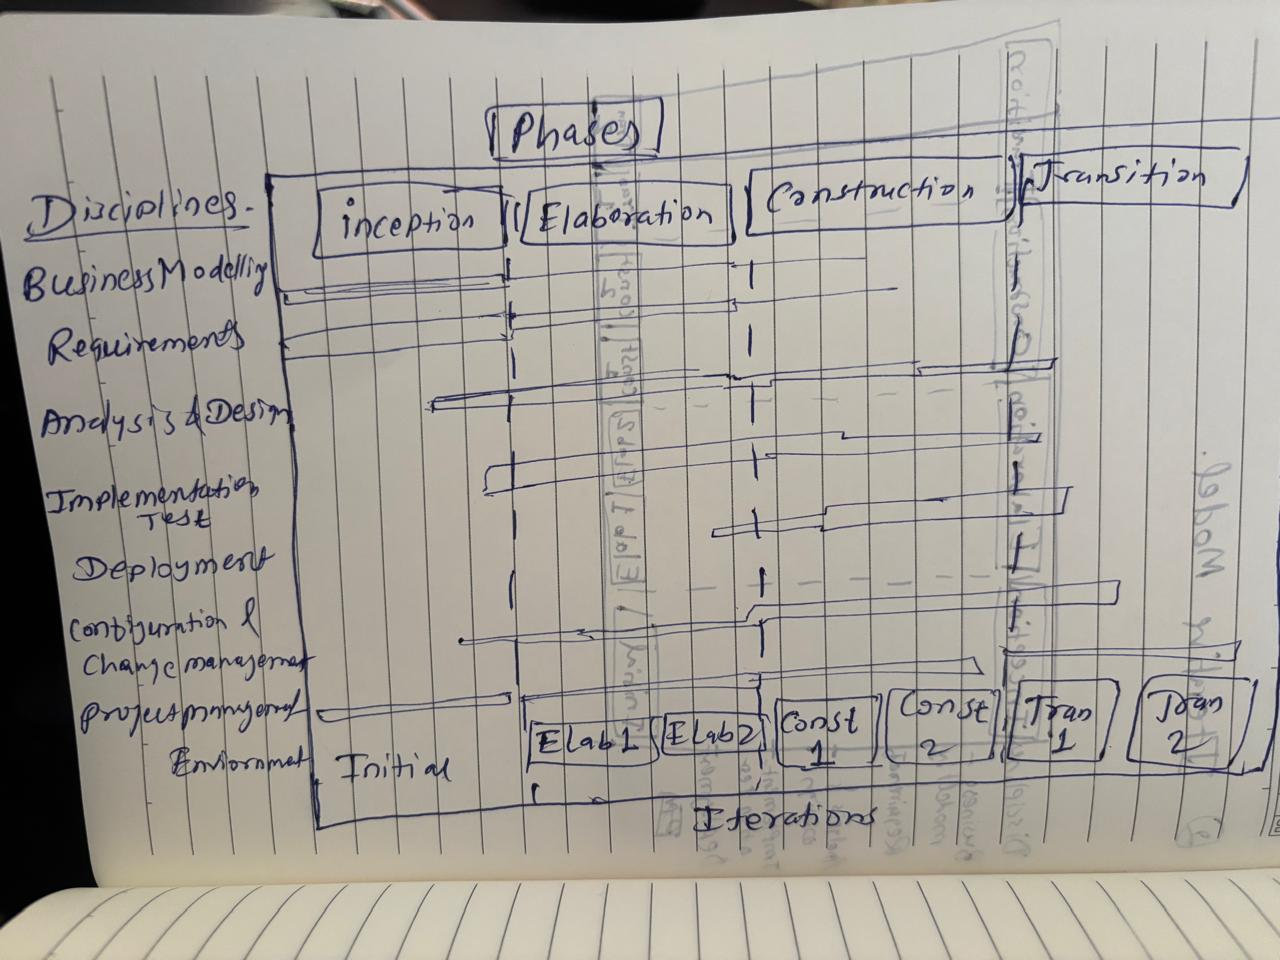 Phases
Disciplines.
inception Elaboration Construction Transition
Business Modelling
Requirements
Analysis & Design
Implementation
Test
Deployment
Configuration &
Change management
Project management
Environment
Initial Elab 1 Elab 2 Const 1 Const 2 Tran 1 Tran 2
Iterations
Model.